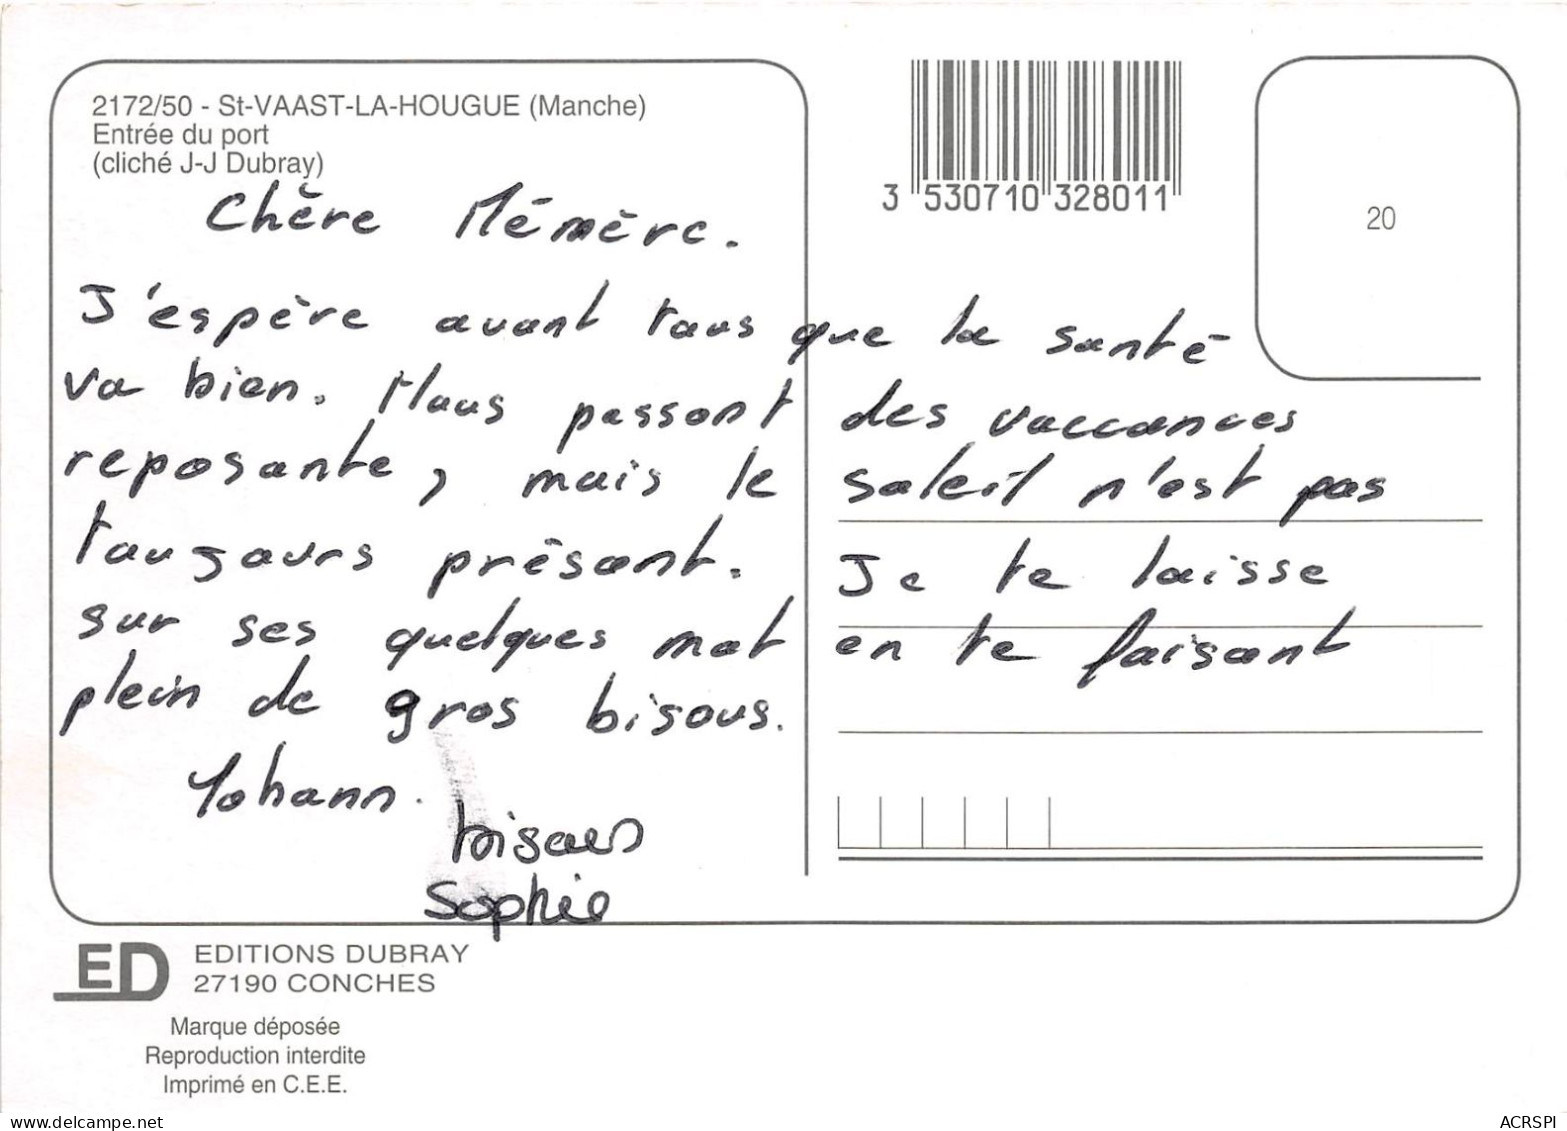 2172/50 - St-VAAST-LA-HOUGUE (Manche)
Entrée du port
(cliché J-J Dubray)
3 530710 328011
20
Chère Mémère.
J'espère avant tous que la santé
va bien. Nous passont des vaccances
reposante, mais le soleil n'est pas
toujours présant. Je te laisse
sur ses quelques mot en te faisant
plein de gros bisous.
Yohann.
bisous
Sophie
ED
EDITIONS DUBRAY
27190 CONCHES
Marque déposée
Reproduction interdite
Imprimé en C.E.E.
www.delcampe.net
ACRSPI